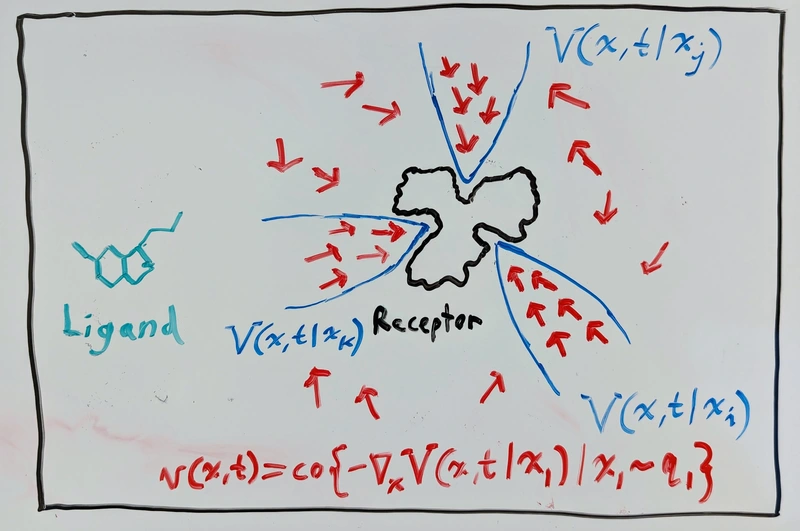 V(x,t|x_j)
Ligand
V(x,t|x_k)
Receptor
V(x,t|x_i)
v(x,t)=co{-∇_x V(x,t|x_1)|x_1~q_1}